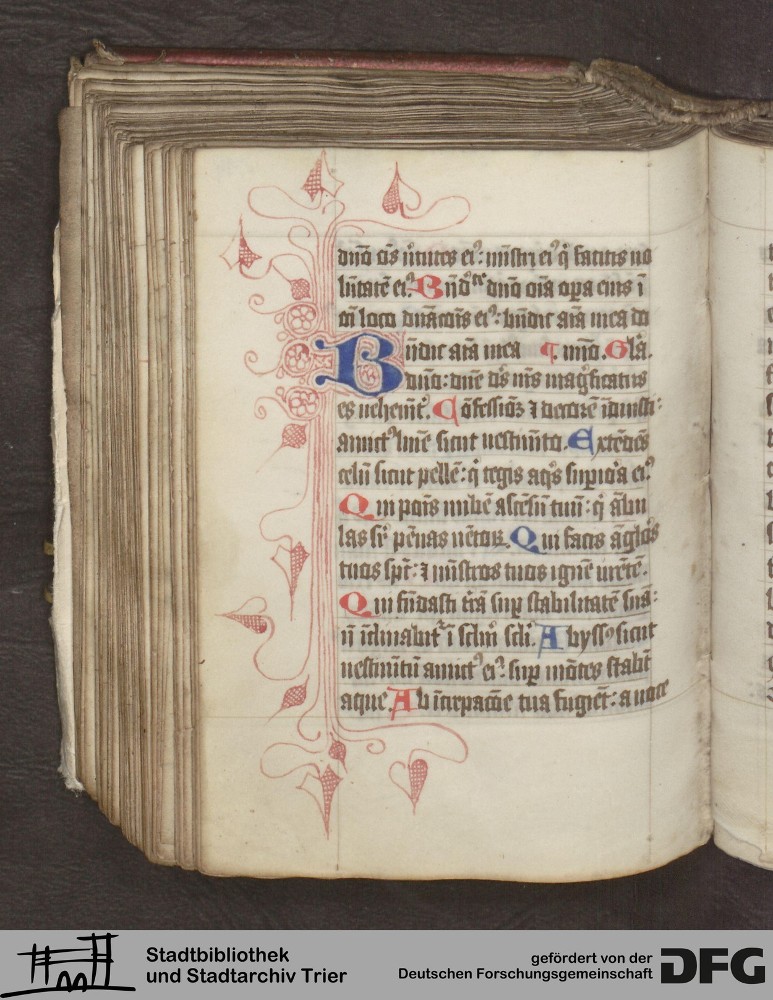 dn̄o o͞s u͛tutes ei᷒: mīstri ei᷒ q̇ facitis uo
lūtatē ei᷒. Bn̄d dn̄o oīa opa eius ī
oī loco dn̄acōis ei᷒: bn̄dic aīa mea do
Bn̄dic aīa mea dn̄o. Glā.
dn̄o: dn̄e ds̄ m̄s mag̊ficatus
es uehemt̄. Cōfessioē ⁊ decorē īduisti:
amict᷒ lumē sicut uestimēto. Extēdēs
celū sicut pellē: q̇ tegis aq̄s supiōa ei᷒.
Qui pōis nubē ascēsū tuū: q̇ ābu
las sr̄ pēnas uētoꝝ. Qui facis āgl̄os
tuos spt̄: ⁊ mīstros tuos ignē urētē.
Qui fūdasti t̄rā sup stabilitatē suā:
nō īclinabit᷑ ī sclm̄ scl̄i. Abyss᷒ sicut
uestimētū amict᷒ ei᷒: sup mōtes stabūt
aque. Ab īcrepacōe tua fugiēt: a uoce
Stadtbibliothek
und Stadtarchiv Trier
gefördert von der
Deutschen Forschungsgemeinschaft
DFG